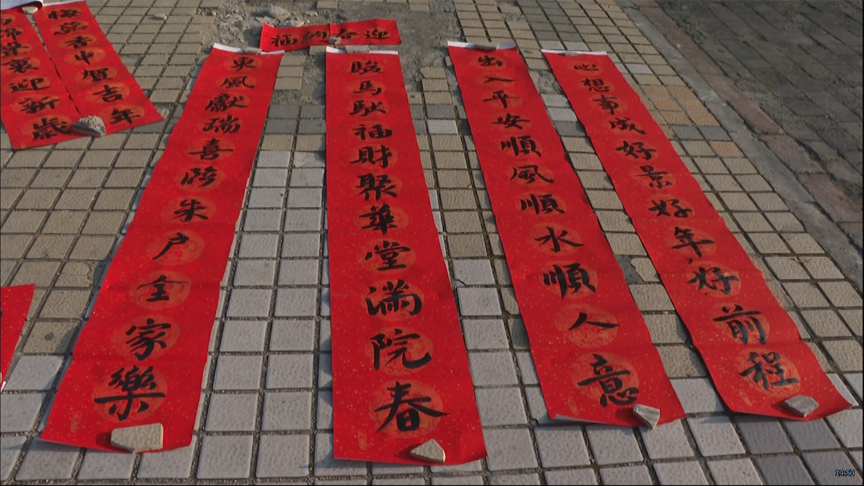 迎春納福
心想事成好景好年好前程
出入平安順風順水順人意
駿馬馱福財聚華堂滿院春
東風獻瑞喜临朱户全家樂
賀吉年
迎新歲
19:50